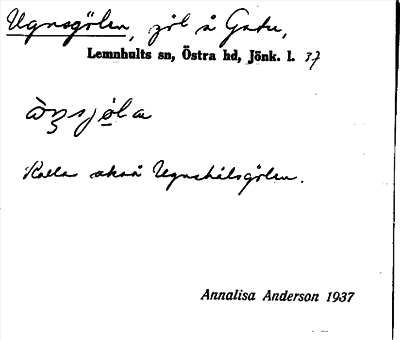 Ugnsgölen, göl å Gatu,
Lemnhults sn, Östra hd, Jönk. l. 37
Kallas också Ugnshålsgölen.
Annalisa Anderson 1937